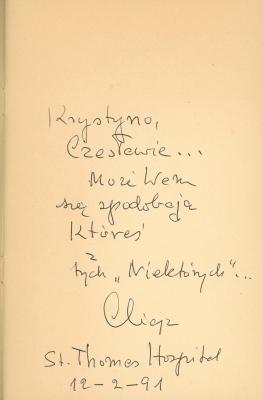 Krystyno,
Czesławie...
Może Wam
się spodobają
któreś
z
tych „Niektórych"...
St. Thomas Hospital
12-2-91